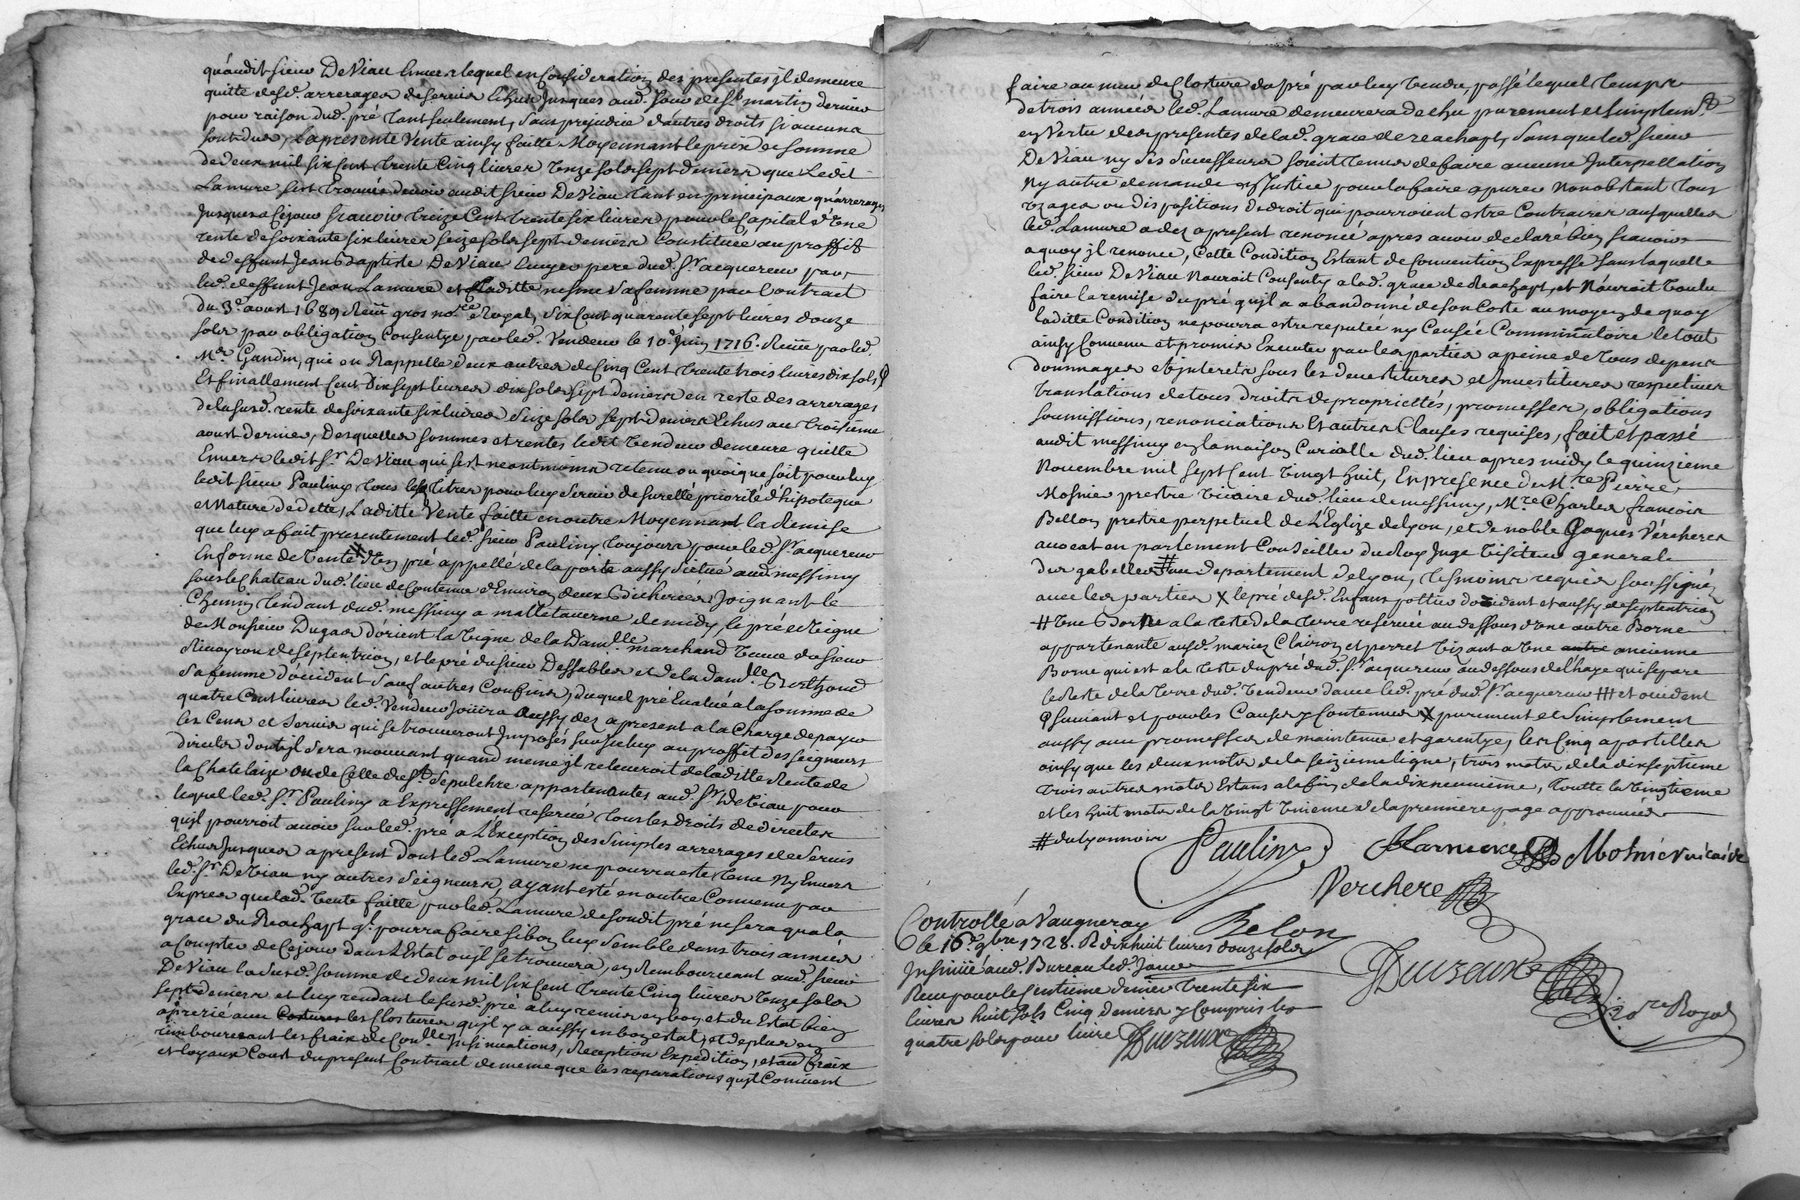 qu'audit sieur De Viau Envers lequel en Consideration des presentes jl demeure
quitte desd. arrerages de servis Echus Jusques aud. jour de St martin dernier
pour raison dud. pré tant seulement, sans prejudice d'autres droits si aucuns
sont dus, La presente Vente ainsy faitte Moyennant le prix et somme
de deux mil six cent trente Cinq livres onze sols sept deniers que Ledit
Lamure s'est trouvé devoir audit sieur De Viau tant en principaux qu'arrerages
Jusques a ce jour scavoir treize Cent trente six livres pour le Capital d'Une
rente de soixante six livres seize sols sept deniers Constituée au proffit
de deffunt Jean Baptiste De Viau Ecuyer pere dud. Sr. acquereur par
led. deffunt Jean Lamure et sa femme par Contract
du 3e. aoust 1689 Receu gros nore. Royal, six Cent quarante sept livres douze
sols par obligation Consentye par led. Vendeur le 10e. Juin 1716. Receue par led.
Me. Gandin, qui en Rappelle deux autres de Cinq Cent trente trois livres dix sols
Et finallement Cent dix sept livres dix sols sept deniers en reste des arrerages
de la susd. rente de soixante six livres seize sols sept deniers Echus au troisieme
aoust dernier, Desquelles sommes et rentes ledit Vendeur demeure quitte
Envers ledit Sr. De Viau qui s'est neantmoins retenu ou quoique soit pour luy
ledit sieur Paulin tous les titres pour luy servir de sureté priorité d'hipoteque
et Nature de dette, Laditte Vente faitte en outre Moyennant la Remise
que luy a fait presentement led. sieur Paulin toujours pour led. Sr. acquereur
En forme de Vente d'Un pré appellé de la porte aussy situé aud. messimy
sous le Chateau dud. lieu de Contenue d'Environ deux Bicherées Joignant le
Chemin tendant dud. messimy a malletaverne de midy le pré et Vigne
de Monsieur Dugas d'orient la Vigne de la Damlle. marchand Veuve du sieur
de septentrion, et le pré du sieur Dessables et de la Damlle. Berthoud
sa femme d'occident sauf autres Confins, duquel pré Evalué a la somme de
quatre Cent livres led. Vendeur Joüira aussy dez a present a la Charge de payer
les Cens et servis qui se trouveront Imposés sur jceluy au proffit des seigneurs
directs dont il sera mouvant quand meme jl releveroit de laditte Rente de
la Chatelaize ou de Celle du St. Sepulchre appartenantes aud. Sr. De Viau pour
lequel led. Sr. Paulin a Expressement reservé tous les droits de directes
qu'jl pourroit avoir sur led. pré a L'Exception des simples arrerages de servis
Echus Jusques a present dont led. Lamure ne pourra estre tenu Ny Envers
led. Sr. De Viau ny autres seigneurs, ayant esté en outre Convenu par
Exprés que lad. Vente faitte par led. Lamure de sondit pré ne sera qu'a la
grace du Reachapt ql. pourra faire si bon luy semble dans trois années
a Compter de Ce jour dans L'Estat ou jl se trouvera, en Rembourceant aud. sieur
De Viau la susd. somme de deux mil six Cent trente Cinq livres onze sols
sept deniers et luy rendant le susd. pré a luy remis en bon et du Estat bien
aprerié avec les Clostures qu'jl y a aussy en bon estat, et de plus en
rembourceant les fraix de Conlle. Insinuations, Reception Expedition, et aux fraix
et loyaux Cout du present Contract de meme que les reparations qu'jl Convient
faire au mur de Closture du pré par luy Vendu, passé lequel temps
de trois années led. Lamure demeurera dechu purement et simplemt.
en Vertu des presentes de lad. grace de reachapt, sans que led. sieur
De Viau ny ses successeurs soient tenus de faire aucune Interpellation
Ny autre demande en Justice pour la faire apurer Nonobstant tous
Usages ou dispositions de droit qui pourroient estre Contraires ausquelles
led. Lamure a dez a present renoncé apres avoir declaré bien scavoir
a quoy jl renonce, Cette Condition Estant de Convention Expresse sans laquelle
led. sieur De Viau N'auroit Consenty a lad. grace de Reachapt, et N'auroit Voulu
faire la remise du pré qu'jl a abandonné de son Costé au moyen de quoy
laditte Condition ne pourra estre reputée ny Censée Comminatoire le tout
ainsy Convenu et promis Executer par les parties a peine de tous depens
dommages et jnterets sous les devestitures et Investitures respectives
translations de tous droits de proprietés, promesses, obligations
soumissions, renonciations Et autres Clauses requises, fait et passé
audit messimy en la maison Curialle dud. lieu apres midy le quinzieme
Novembre mil sept Cent Vingt huit, En presence de Mre. Pierre
Mosnier prestre Vicaire dud. lieu de messimy, Mre. Charles francois
Bellon prestre perpetuel de L'Eglize de Lyon, et de noble Jaques Verchere
avocat en parlement Conseiller du Roy Juge Visiteur general
des gabelles # au departement de Lyon, tesmoins requis soussignés
avec les parties X le pré desd. Enfans pottier d'occident et aussy de septentrion
# Une Borne a la teste de la terre reservée au dessous d'une autre Borne
appartenante ausd. mariez Clairon et perret Visant a Une autre ancienne
Borne qui est a la teste du pré dud. Sr. acquereur au dessous de l'haye qui separe
le Reste de la terre dud. Vendeur d'avec led. pré dud. Sr. acquereur ### et occident
φ suivant et pour les Causes y Contenues X purement et simplement
aussy avec promesses de maintenir et garentye, les Cinq apostilles
ainsy que les deux mots de la seizieme ligne, trois mots de la dix septieme
trois autres mots Estans a la fin de la dix neuvieme, toutte la Vingtieme
et les huit mots de la Vingt Unieme de la premiere page approuvés
# du Lyonnois
Paulin Lamure Mosnier vicaire
Verchere
Belon
Controllé a Vaugneray
le 16e. 9bre 1728. R dix huit livres douze sols
Insinué aud. Bureau led. Jour
Receu pour le Centieme denier trente six
livres huit sols Cinq deniers y Compris les
quatre sols pour livre Duvzeux
Duvzeux
nore. Royal